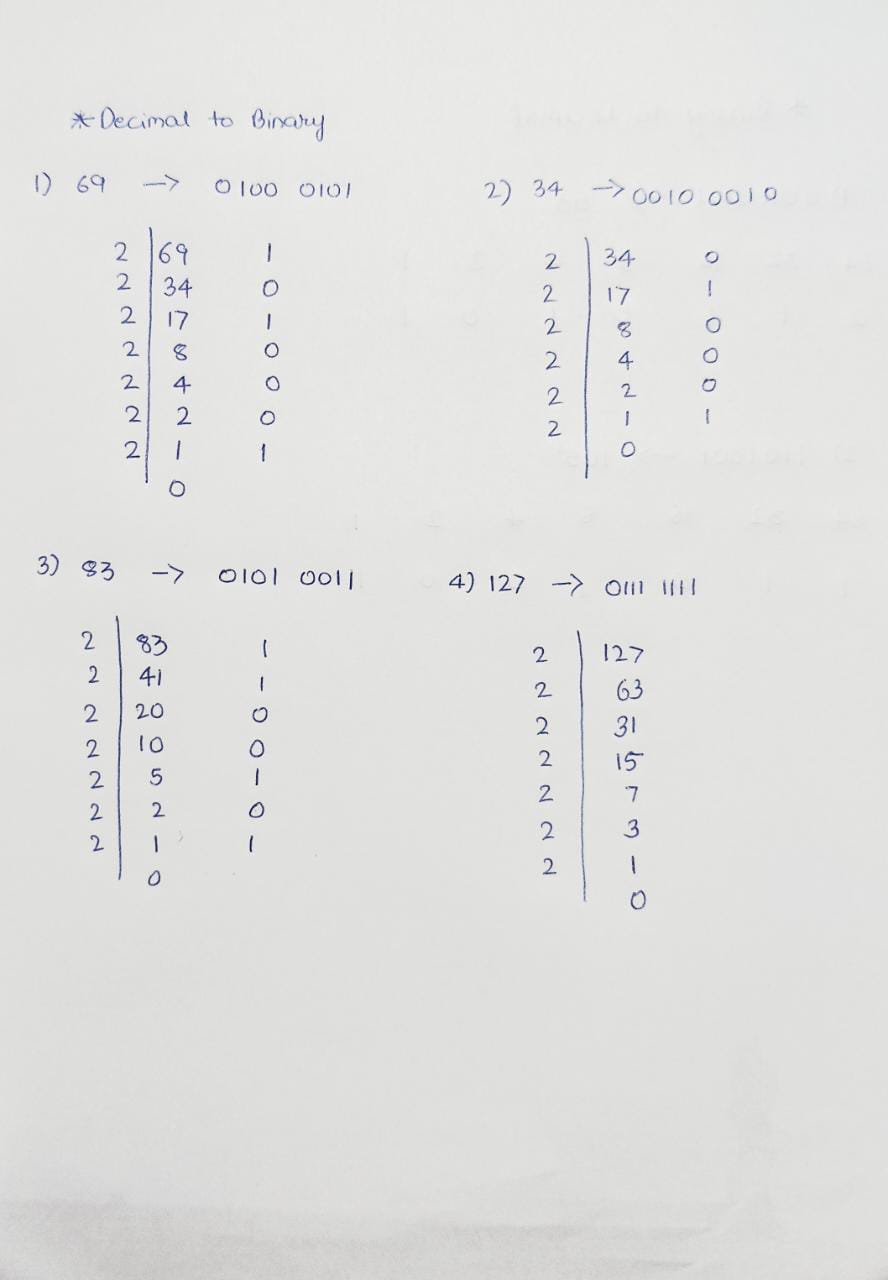 *Decimal to Binary
1) 69 -> 0100 0101
2 69 1
2 34 0
2 17 1
2 8 0
2 4 0
2 2 0
2 1 1
0
2) 34 -> 0010 0010
2 34 0
2 17 1
2 8 0
2 4 0
2 2 0
2 1 1
0
3) 83 -> 0101 0011
2 83 1
2 41 1
2 20 0
2 10 0
2 5 1
2 2 0
2 1 1
0
4) 127 -> 0111 1111
2 127
2 63
2 31
2 15
2 7
2 3
2 1
0